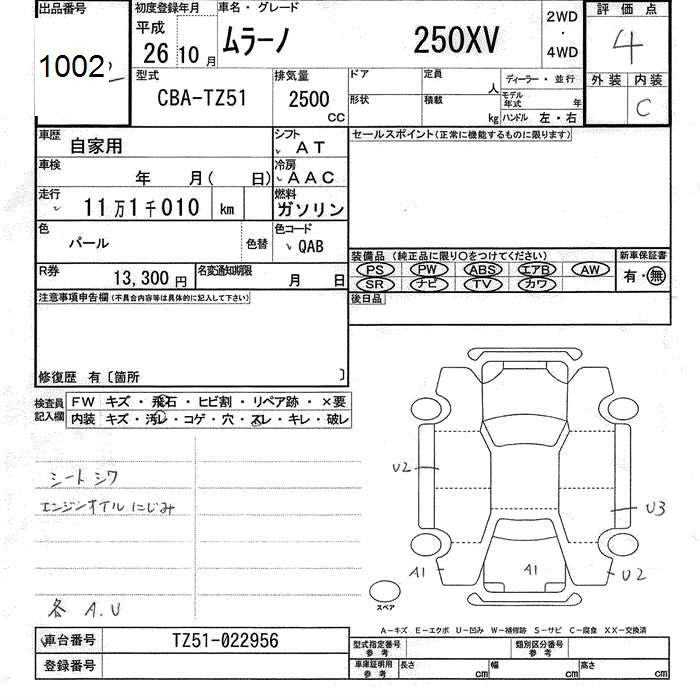 出品番号
1002
初度登録年月
平成
26 10 月
車名・グレード
ムラーノ 250XV
2WD
・
4WD
評価点
4
外装 内装
C
型式
CBA-TZ51
排気量
2500
CC
ドア
形状
定員
人
積載
kg
ディーラー・並行
モデル年式 年
ハンドル 左・右
車歴
自家用
シフト
AT
セールスポイント(正常に機能するものに限ります)
車検
年 月( 日)
冷房
AAC
走行
11万1千010 km
燃料
ガソリン
色
パール
色替
色コード
QAB
装備品 (純正品に限り○をつけてください)
PS PW ABS エアB AW
SR ナビ TV カワ
新車保証書
有・無
R券
13,300円
名変通知期限
月 日
後日品
注意事項申告欄(不具合内容等は具体的に記入して下さい)
修復歴 有〔箇所 〕
検査員
記入欄
FW キズ・飛石・ヒビ割・リペア跡・×要
内装 キズ・汚レ・コゲ・穴・スレ・キレ・破レ
シート シワ
エンジンオイル にじみ
各 A.U
U2
U3
A1
A1
U2
スペア
A-キズ E-エクボ U-凹み W-補修跡 S-サビ C-腐食 XX-交換済
車台番号
TZ51-022956
登録番号
型式指定番号
参考
類別区分番号
参考
車庫証明用
参考
長さ cm
幅 cm
高さ cm